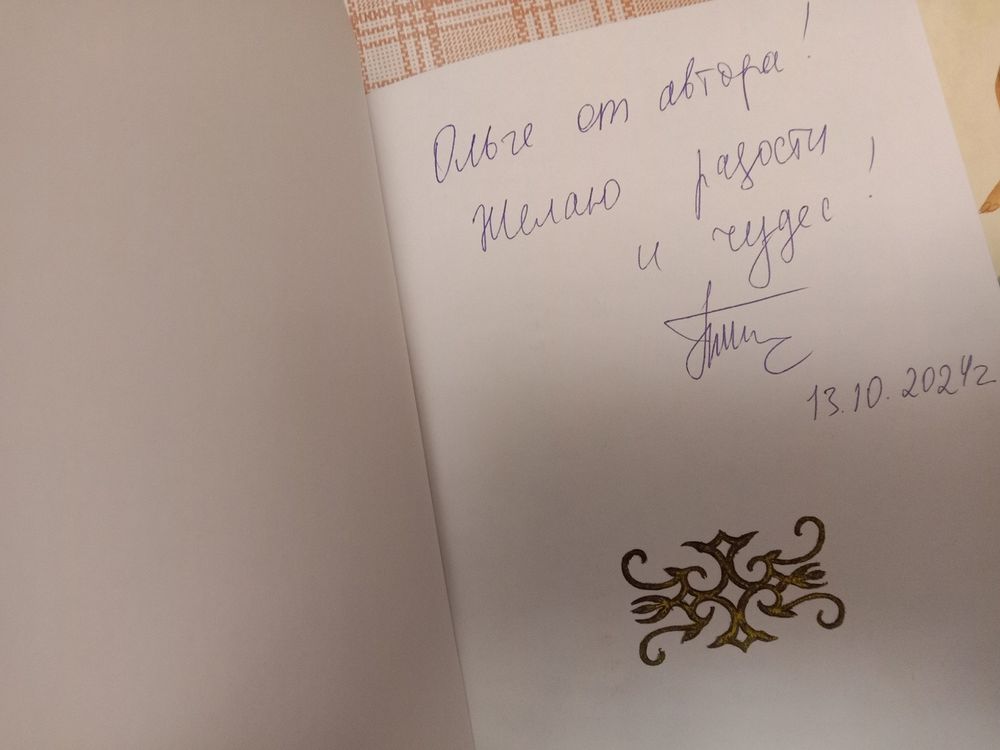 Ольге от автора!
Желаю радости
и чудес!
13.10.2024г